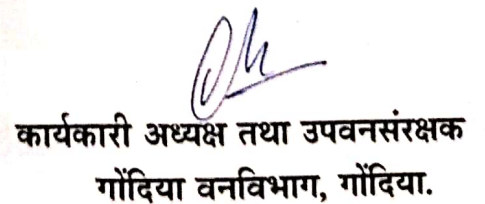 कार्यकारी अध्यक्ष तथा उपवनसंरक्षक
गोंदिया वनविभाग, गोंदिया.